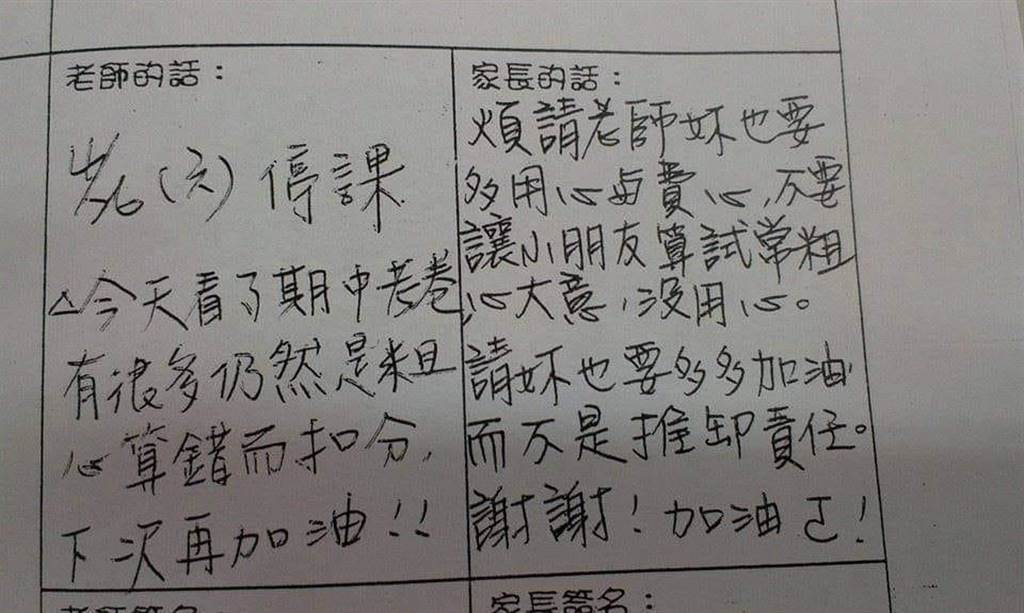 老師的話：
4/26(六) 停課
△今天看了期中考卷
有很多仍然是粗
心算錯而扣分,
下次再加油!!
家長的話：
煩請老師妳也要
多用心與費心,不要
讓小朋友算試常粗
心大意,沒用心。
請妳也要多多加油
而不是推卸責任。
謝謝!加油!
老師簽名：
家長簽名：